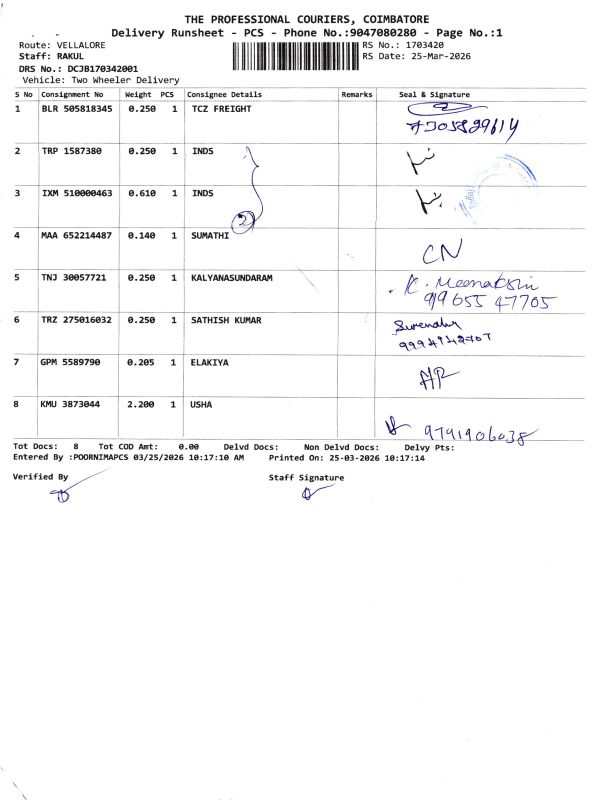 THE PROFESSIONAL COURIERS, COIMBATORE
Delivery Runsheet - PCS - Phone No.:9047080280 - Page No.:1
Route: VELLALORE RS No.: 1703420
Staff: RAKUL RS Date: 25-Mar-2026
DRS No.: DCJB170342001
Vehicle: Two Wheeler Delivery
S No Consignment No Weight PCS Consignee Details Remarks Seal & Signature
1 BLR 505818345 0.250 1 TCZ FREIGHT
2 TRP 1587380 0.250 1 INDS
3 IXM 510000463 0.610 1 INDS
2
4 MAA 652214487 0.140 1 SUMATHI CN
5 TNJ 30057721 0.250 1 KALYANASUNDARAM K. Meenakshi
99655 47705
6 TRZ 275016032 0.250 1 SATHISH KUMAR
7 GPM 5589790 0.205 1 ELAKIYA
8 KMU 3873044 2.200 1 USHA
9791906038
Tot Docs: 8 Tot COD Amt: 0.00 Delvd Docs: Non Delvd Docs: Delvy Pts:
Entered By :POORNIMAPCS 03/25/2026 10:17:10 AM Printed On: 25-03-2026 10:17:14
Verified By Staff Signature